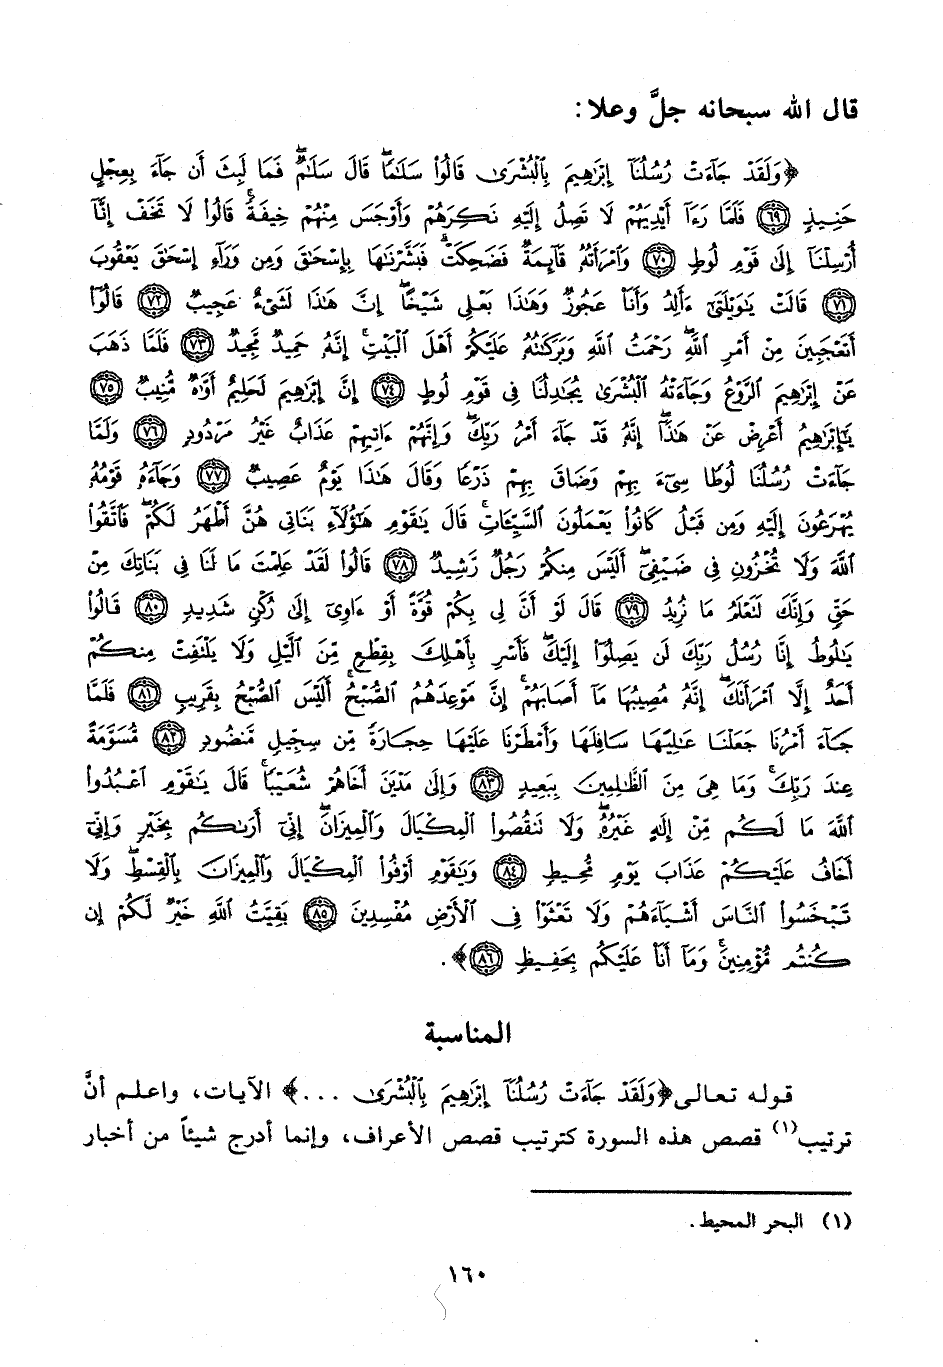 قال الله سبحانه جلَّ وعلا:
﴿وَلَقَدْ جَآءَتْ رُسُلُنَآ إِبْرَٰهِيمَ بِٱلْبُشْرَىٰ قَالُوا۟ سَلَٰمًا ۖ قَالَ سَلَٰمٌ ۖ فَمَا لَبِثَ أَن جَآءَ بِعِجْلٍ
حَنِيذٍ ٦٩ فَلَمَّا رَءَآ أَيْدِيَهُمْ لَا تَصِلُ إِلَيْهِ نَكِرَهُمْ وَأَوْجَسَ مِنْهُمْ خِيفَةً ۚ قَالُوا۟ لَا تَخَفْ إِنَّآ
أُرْسِلْنَآ إِلَىٰ قَوْمِ لُوطٍ ٧٠ وَٱمْرَأَتُهُۥ قَآئِمَةٌ فَضَحِكَتْ فَبَشَّرْنَٰهَا بِإِسْحَٰقَ وَمِن وَرَآءِ إِسْحَٰقَ يَعْقُوبَ
٧١ قَالَتْ يَٰوَيْلَتَىٰٓ ءَأَلِدُ وَأَنَا۠ عَجُوزٌ وَهَٰذَا بَعْلِى شَيْخًا ۖ إِنَّ هَٰذَا لَشَىْءٌ عَجِيبٌ ٧٢ قَالُوٓا۟
أَتَعْجَبِينَ مِنْ أَمْرِ ٱللَّهِ ۖ رَحْمَتُ ٱللَّهِ وَبَرَكَٰتُهُۥ عَلَيْكُمْ أَهْلَ ٱلْبَيْتِ ۚ إِنَّهُۥ حَمِيدٌ مَّجِيدٌ ٧٣ فَلَمَّا ذَهَبَ
عَنْ إِبْرَٰهِيمَ ٱلرَّوْعُ وَجَآءَتْهُ ٱلْبُشْرَىٰ يُجَٰدِلُنَا فِى قَوْمِ لُوطٍ ٧٤ إِنَّ إِبْرَٰهِيمَ لَحَلِيمٌ أَوَّٰهٌ مُّنِيبٌ ٧٥
يَٰٓإِبْرَٰهِيمُ أَعْرِضْ عَنْ هَٰذَآ ۖ إِنَّهُۥ قَدْ جَآءَ أَمْرُ رَبِّكَ ۖ وَإِنَّهُمْ ءَاتِيهِمْ عَذَابٌ غَيْرُ مَرْدُودٍ ٧٦ وَلَمَّا
جَآءَتْ رُسُلُنَا لُوطًا سِىٓءَ بِهِمْ وَضَاقَ بِهِمْ ذَرْعًا وَقَالَ هَٰذَا يَوْمٌ عَصِيبٌ ٧٧ وَجَآءَهُۥ قَوْمُهُۥ
يُهْرَعُونَ إِلَيْهِ وَمِن قَبْلُ كَانُوا۟ يَعْمَلُونَ ٱلسَّيِّـَٔاتِ ۚ قَالَ يَٰقَوْمِ هَٰٓؤُلَآءِ بَنَاتِى هُنَّ أَطْهَرُ لَكُمْ ۖ فَٱتَّقُوا۟
ٱللَّهَ وَلَا تُخْزُونِ فِى ضَيْفِىٓ ۖ أَلَيْسَ مِنكُمْ رَجُلٌ رَّشِيدٌ ٧٨ قَالُوا۟ لَقَدْ عَلِمْتَ مَا لَنَا فِى بَنَاتِكَ مِنْ
حَقٍّ وَإِنَّكَ لَتَعْلَمُ مَا نُرِيدُ ٧٩ قَالَ لَوْ أَنَّ لِى بِكُمْ قُوَّةً أَوْ ءَاوِىٓ إِلَىٰ رُكْنٍ شَدِيدٍ ٨٠ قَالُوا۟
يَٰلُوطُ إِنَّا رُسُلُ رَبِّكَ لَن يَصِلُوٓا۟ إِلَيْكَ ۖ فَأَسْرِ بِأَهْلِكَ بِقِطْعٍ مِّنَ ٱلَّيْلِ وَلَا يَلْتَفِتْ مِنكُمْ
أَحَدٌ إِلَّا ٱمْرَأَتَكَ ۖ إِنَّهُۥ مُصِيبُهَا مَآ أَصَابَهُمْ ۚ إِنَّ مَوْعِدَهُمُ ٱلصُّبْحُ ۚ أَلَيْسَ ٱلصُّبْحُ بِقَرِيبٍ ٨١ فَلَمَّا
جَآءَ أَمْرُنَا جَعَلْنَا عَٰلِيَهَا سَافِلَهَا وَأَمْطَرْنَا عَلَيْهَا حِجَارَةً مِّن سِجِّيلٍ مَّنضُودٍ ٨٢ مُّسَوَّمَةً
عِندَ رَبِّكَ ۖ وَمَا هِىَ مِنَ ٱلظَّٰلِمِينَ بِبَعِيدٍ ٨٣ وَإِلَىٰ مَدْيَنَ أَخَاهُمْ شُعَيْبًا ۚ قَالَ يَٰقَوْمِ ٱعْبُدُوا۟
ٱللَّهَ مَا لَكُم مِّنْ إِلَٰهٍ غَيْرُهُۥ ۖ وَلَا تَنقُصُوا۟ ٱلْمِكْيَالَ وَٱلْمِيزَانَ ۚ إِنِّىٓ أَرَىٰكُم بِخَيْرٍ وَإِنِّىٓ
أَخَافُ عَلَيْكُمْ عَذَابَ يَوْمٍ مُّحِيطٍ ٨٤ وَيَٰقَوْمِ أَوْفُوا۟ ٱلْمِكْيَالَ وَٱلْمِيزَانَ بِٱلْقِسْطِ ۖ وَلَا
تَبْخَسُوا۟ ٱلنَّاسَ أَشْيَآءَهُمْ وَلَا تَعْثَوْا۟ فِى ٱلْأَرْضِ مُفْسِدِينَ ٨٥ بَقِيَّتُ ٱللَّهِ خَيْرٌ لَّكُمْ إِن
كُنتُم مُّؤْمِنِينَ ۚ وَمَآ أَنَا۠ عَلَيْكُم بِحَفِيظٍ ٨٦﴾.
المناسبة
قوله تعالى ﴿وَلَقَدْ جَآءَتْ رُسُلُنَآ إِبْرَٰهِيمَ بِٱلْبُشْرَىٰ ...﴾ الآيات، واعلم أنَّ
ترتيب(١) قصص هذه السورة كترتيب قصص الأعراف، وإنما أدرج شيئاً من أخبار
(١) البحر المحيط.
١٦٠